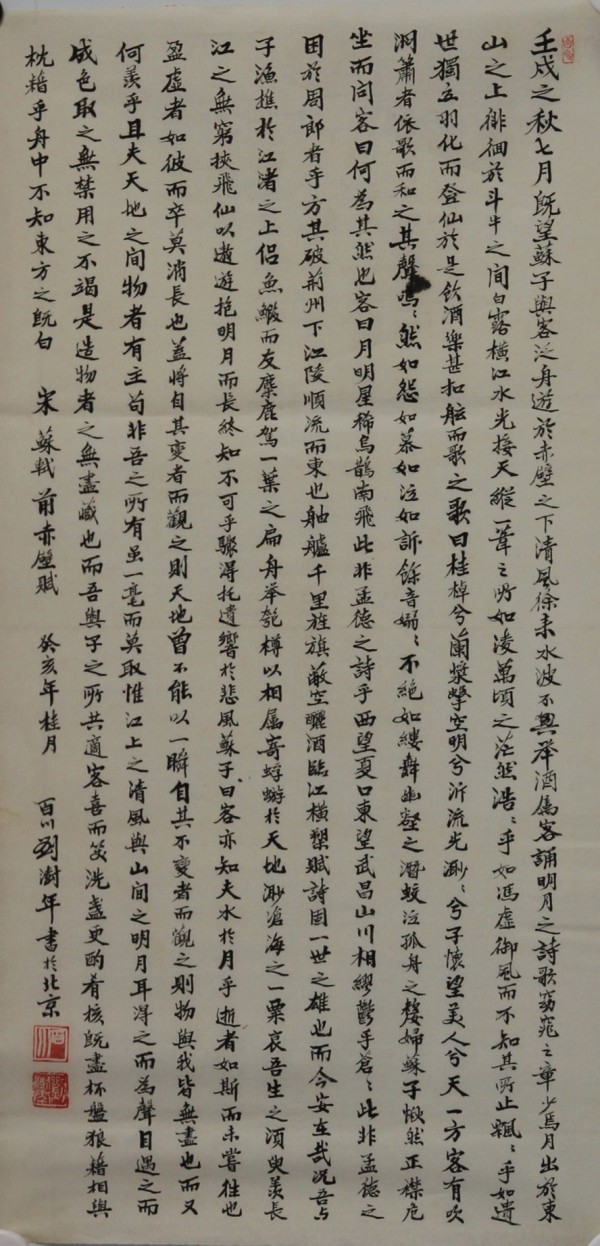 壬戌之秋七月既望蘇子與客泛舟遊於赤壁之下清風徐来水波不興舉酒属客誦明月之詩歌窈窕之章少焉月出於東
山之上徘徊於斗牛之間白露横江水光接天縱一葦之所如淩萬頃之茫然浩浩乎如馮虛御風而不知其所止飄飄乎如遺
世獨立羽化而登仙於是飲酒樂甚扣舷而歌之歌曰桂棹兮蘭槳擊空明兮泝流光渺渺兮予懷望美人兮天一方客有吹
洞簫者依歌而和之其聲嗚嗚然如怨如慕如泣如訴餘音嫋嫋不絕如縷舞幽壑之潛蛟泣孤舟之嫠婦蘇子愀然正襟危
坐而問客曰何為其然也客曰月明星稀烏鵲南飛此非孟德之詩乎西望夏口東望武昌山川相繆鬱乎蒼蒼此非孟德之
困於周郎者乎方其破荊州下江陵順流而東也舳艫千里旌旗蔽空釃酒臨江横槊賦詩固一世之雄也而今安在哉況吾与
子漁樵於江渚之上侣魚鰕而友麋鹿駕一葉之扁舟举匏樽以相属寄蜉蝣於天地渺滄海之一粟哀吾生之須臾羡長
江之無窮挾飛仙以遨遊抱明月而長終知不可乎驟得托遺響於悲風蘇子曰客亦知夫水於月乎逝者如斯而未嘗往也
盈虛者如彼而卒莫消長也蓋將自其變者而觀之則天地曾不能以一瞬自其不變者而觀之則物與我皆無盡也而又
何羨乎且夫天地之間物者有主苟非吾之所有虽一毫而莫取惟江上之清風與山間之明月耳得之而為聲目遇之而
成色取之無禁用之不竭是造物者之無盡藏也而吾與子之所共適客喜而笑洗盞更酌肴核既盡杯盤狼藉相與
枕藉乎舟中不知東方之既白 宋蘇軾前赤壁賦 癸亥年桂月 百川劉澍年書於北京